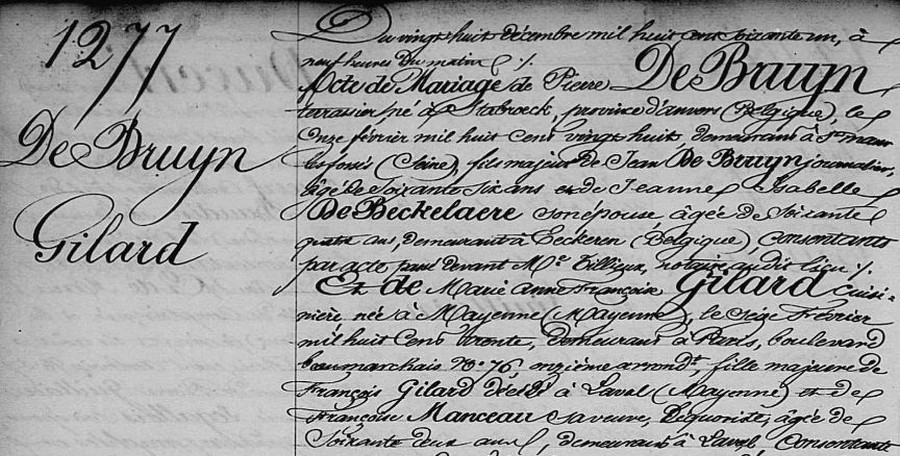 1277
De Bruyn
Gilard
Du vingt huit décembre mil huit cent soixante un, à
neuf heures du matin ./.
Acte de Mariage de Pierre De Bruyn
terrassier né à Stabroeck, province d'anvers (Belgique), le
onze février mil huit cent vingt huit, demeurant à St maur
les fossés (Seine), fils majeur de Jean De Bruyn journalier,
âgé de soixante six ans et de Jeanne Isabelle
De Beckelaere son épouse âgée de soixante
quatre ans, demeurant à Eeckeren (Belgique), consentants
par acte passé devant Me Tillieux, notaire audit lieu ./.
Et de Marie Anne Françoise Gilard cuisi-
nière née à Mayenne (Mayenne), le seize février
mil huit cent trente, demeurant à Paris, boulevard
beaumarchais No 76 onzième arrondt, fille majeure de
François Gilard décédé à Laval (Mayenne) et de
Françoise Manceau sa veuve, âgée de
soixante deux ans, demeurant à Laval consentante